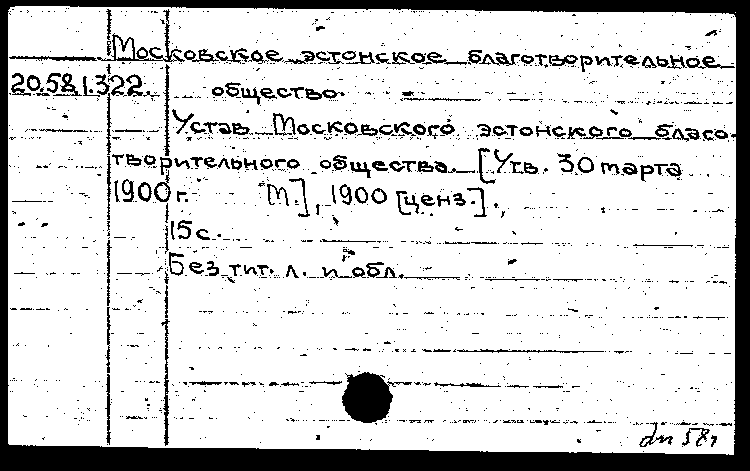 Московское эстонское благотворительное
20.581.322. общество.
Устав Московского эстонского благо-
творительного общества. [Утв. 30 марта
1900 г. М.], 1900 [ценз.].
15 с.
Без тит. л. и обл.